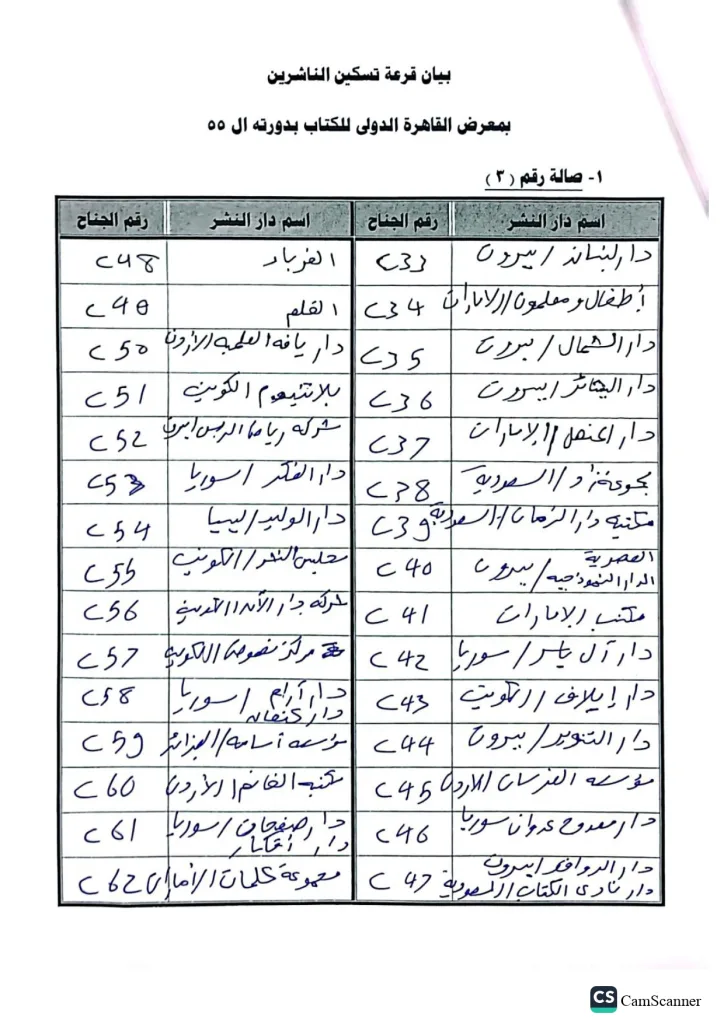 بيان قرعة تسكين الناشرين
بمعرض القاهرة الدولى للكتاب بدورته ال ٥٥
١- صالة رقم (٣)
اسم دار النشر رقم الجناح اسم دار النشر رقم الجناح
دار لبنان / بيروت C33 C48
أطفال ومعلمون / الامارات C34 القلم C49
دار الشمال / بيروت C35 دار يافه العلمية الأردن C50
دار البشائر / بيروت C36 بلاتنيوم الكويت C51
دار / الامارات C37 شركه رياض الريس C52
مجموعة / السعودية C38 دار الفكر / سوريا C53
مكتبه دار الزمان / السعودية C39 دار الوليد / ليبيا C54
العصرية
الدار النموذجيه / بيروت C40 مجلس النشر / الكويت C55
مكتب / الامارات C41 شركه دار C56
دار آل ياسر / سوريا C42 مركز نصوص الكويت C57
دار إيلاف / الكويت C43 دار آرام / سوريا C58
دار كنعان
دار التنوير / بيروت C44 مؤسسه أسامه / الجزائر C59
مؤسسه الفرسان / الاردن C45 مكتبه الغانم / الأردن C60
دار ممدوح عدوان سوريا C46 دار صفحات / سوريا C61
دار
دار الروافد / بيروت
دار نادى الكتاب / السعودية C47 مجموعة كلمات / الأمارات C62
CS CamScanner